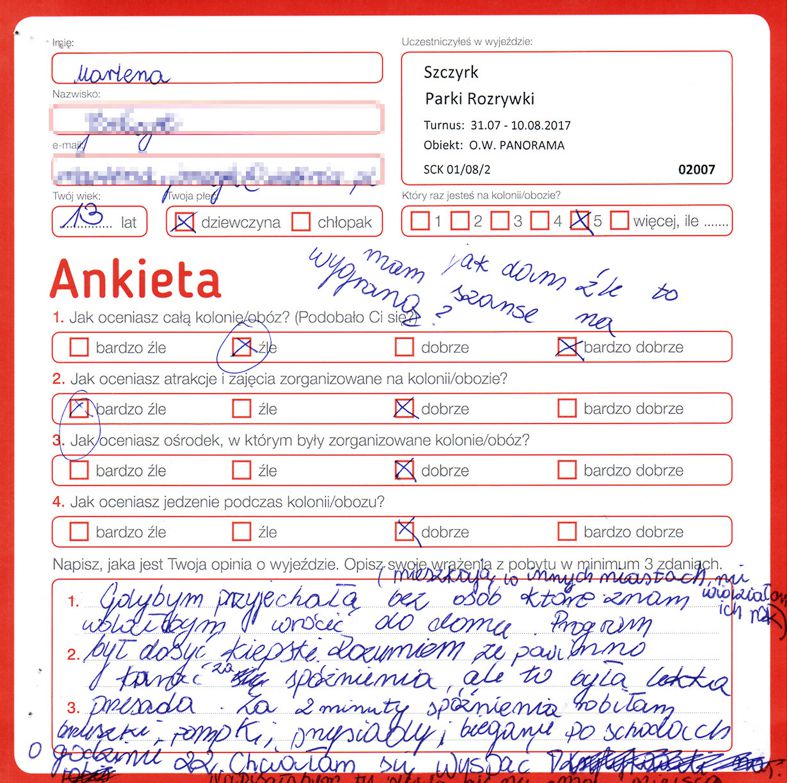 Imię:
Marlena
Nazwisko:
e-mail:
Twój wiek:
13 lat
Twoja płeć
dziewczyna chłopak
Uczestniczyłeś w wyjeździe:
Szczyrk
Parki Rozrywki
Turnus: 31.07 - 10.08.2017
Obiekt: O.W. PANORAMA
SCK 01/08/2 02007
Który raz jesteś na kolonii/obozie?
1 2 3 4 5 więcej, ile .......
Ankieta
mam jak dam źle to
wygraną? szanse na
1. Jak oceniasz całą kolonie/obóz? (Podobało Ci się?)
bardzo źle źle dobrze bardzo dobrze
2. Jak oceniasz atrakcje i zajęcia zorganizowane na kolonii/obozie?
bardzo źle źle dobrze bardzo dobrze
3. Jak oceniasz ośrodek, w którym były zorganizowane kolonie/obóz?
bardzo źle źle dobrze bardzo dobrze
4. Jak oceniasz jedzenie podczas kolonii/obozu?
bardzo źle źle dobrze bardzo dobrze
Napisz, jaka jest Twoja opinia o wyjeździe. Opisz swoje wrażenia z pobytu w minimum 3 zdaniach.
(mieszkają w innych miastach, nie widziałam ich rok)
1. Gdybym przyjechała bez osób które znam
wolałbym wrócić do domu. Program
2. był dosyć kiepski. Rozumiem że powinno
karać za spóźnienia, ale to była lekka
3. przesada. Za 2 minuty spóźnienia robiłam
brzuszki, pompki, przysiady i bieganie po schodach
o godzinie 22. Chciałam się wyspać